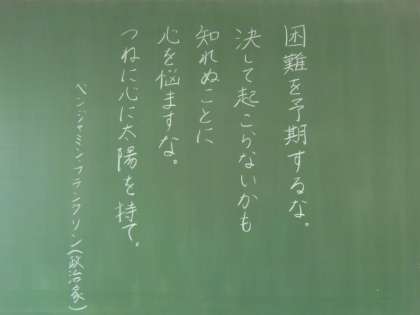 困難を予期するな。
決して起こらないかも
知れぬことに
心を悩ますな。
つねに心に太陽を持て。
ベンジャミン・フランクリン（政治家）